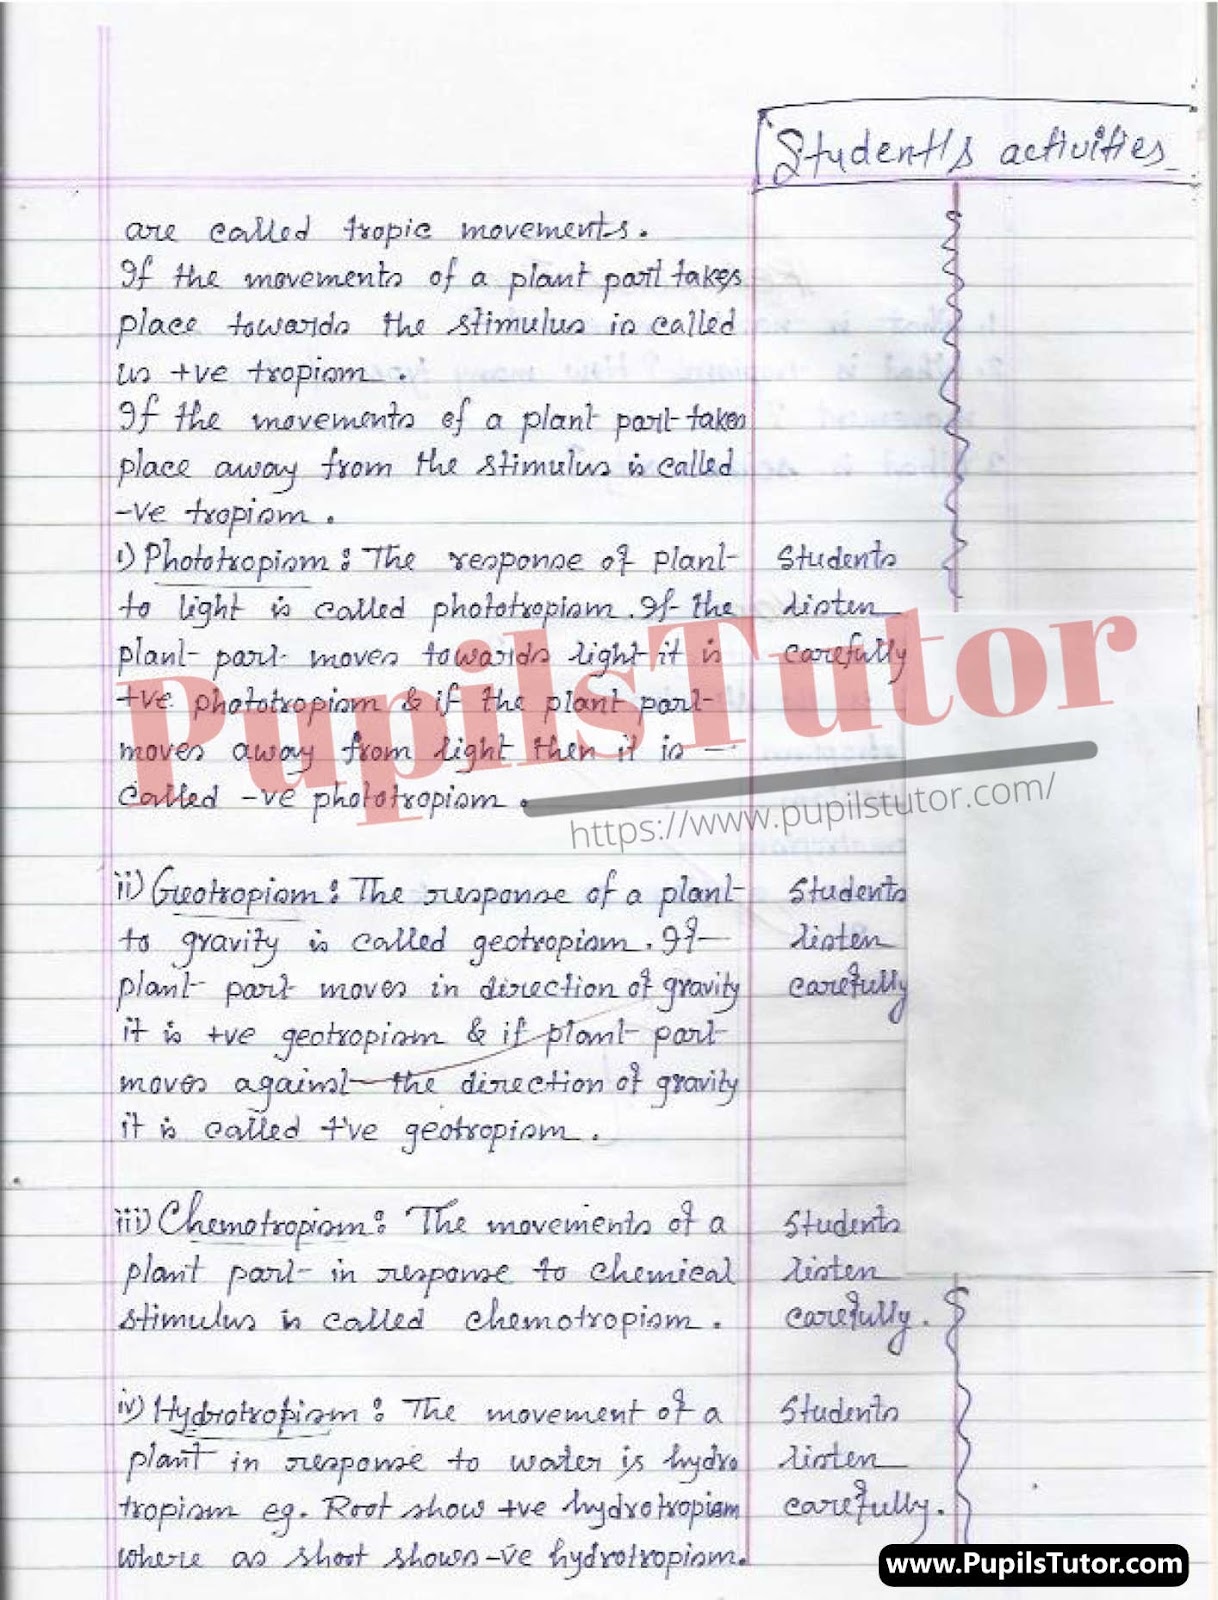 Student's activities
are called tropic movements.
If the movements of a plant part takes
place towards the stimulus is called
us +ve tropism.
If the movements of a plant part takes
place away from the stimulus is called
-ve tropism.
i) Phototropism: The response of plant
to light is called phototropism. If the
plant part moves towards light it is
+ve phototropism & if the plant part
moves away from light then it is -
called -ve phototropism.
Students
listen
carefully
PupilsTutor
https://www.pupilstutor.com/
ii) Geotropism: The response of a plant
to gravity is called geotropism. If
plant part moves in direction of gravity
it is +ve geotropism & if plant part
moves against the direction of gravity
it is called +ve geotropism.
Students
listen
carefully
iii) Chemotropism: The movements of a
plant part in response to chemical
stimulus is called chemotropism.
Students
listen
carefully.
iv) Hydrotropism: The movement of a
plant in response to water is hydro
tropism eg. Root show +ve hydrotropism
where as shoot shows -ve hydrotropism.
Students
listen
carefully.
www.PupilsTutor.com